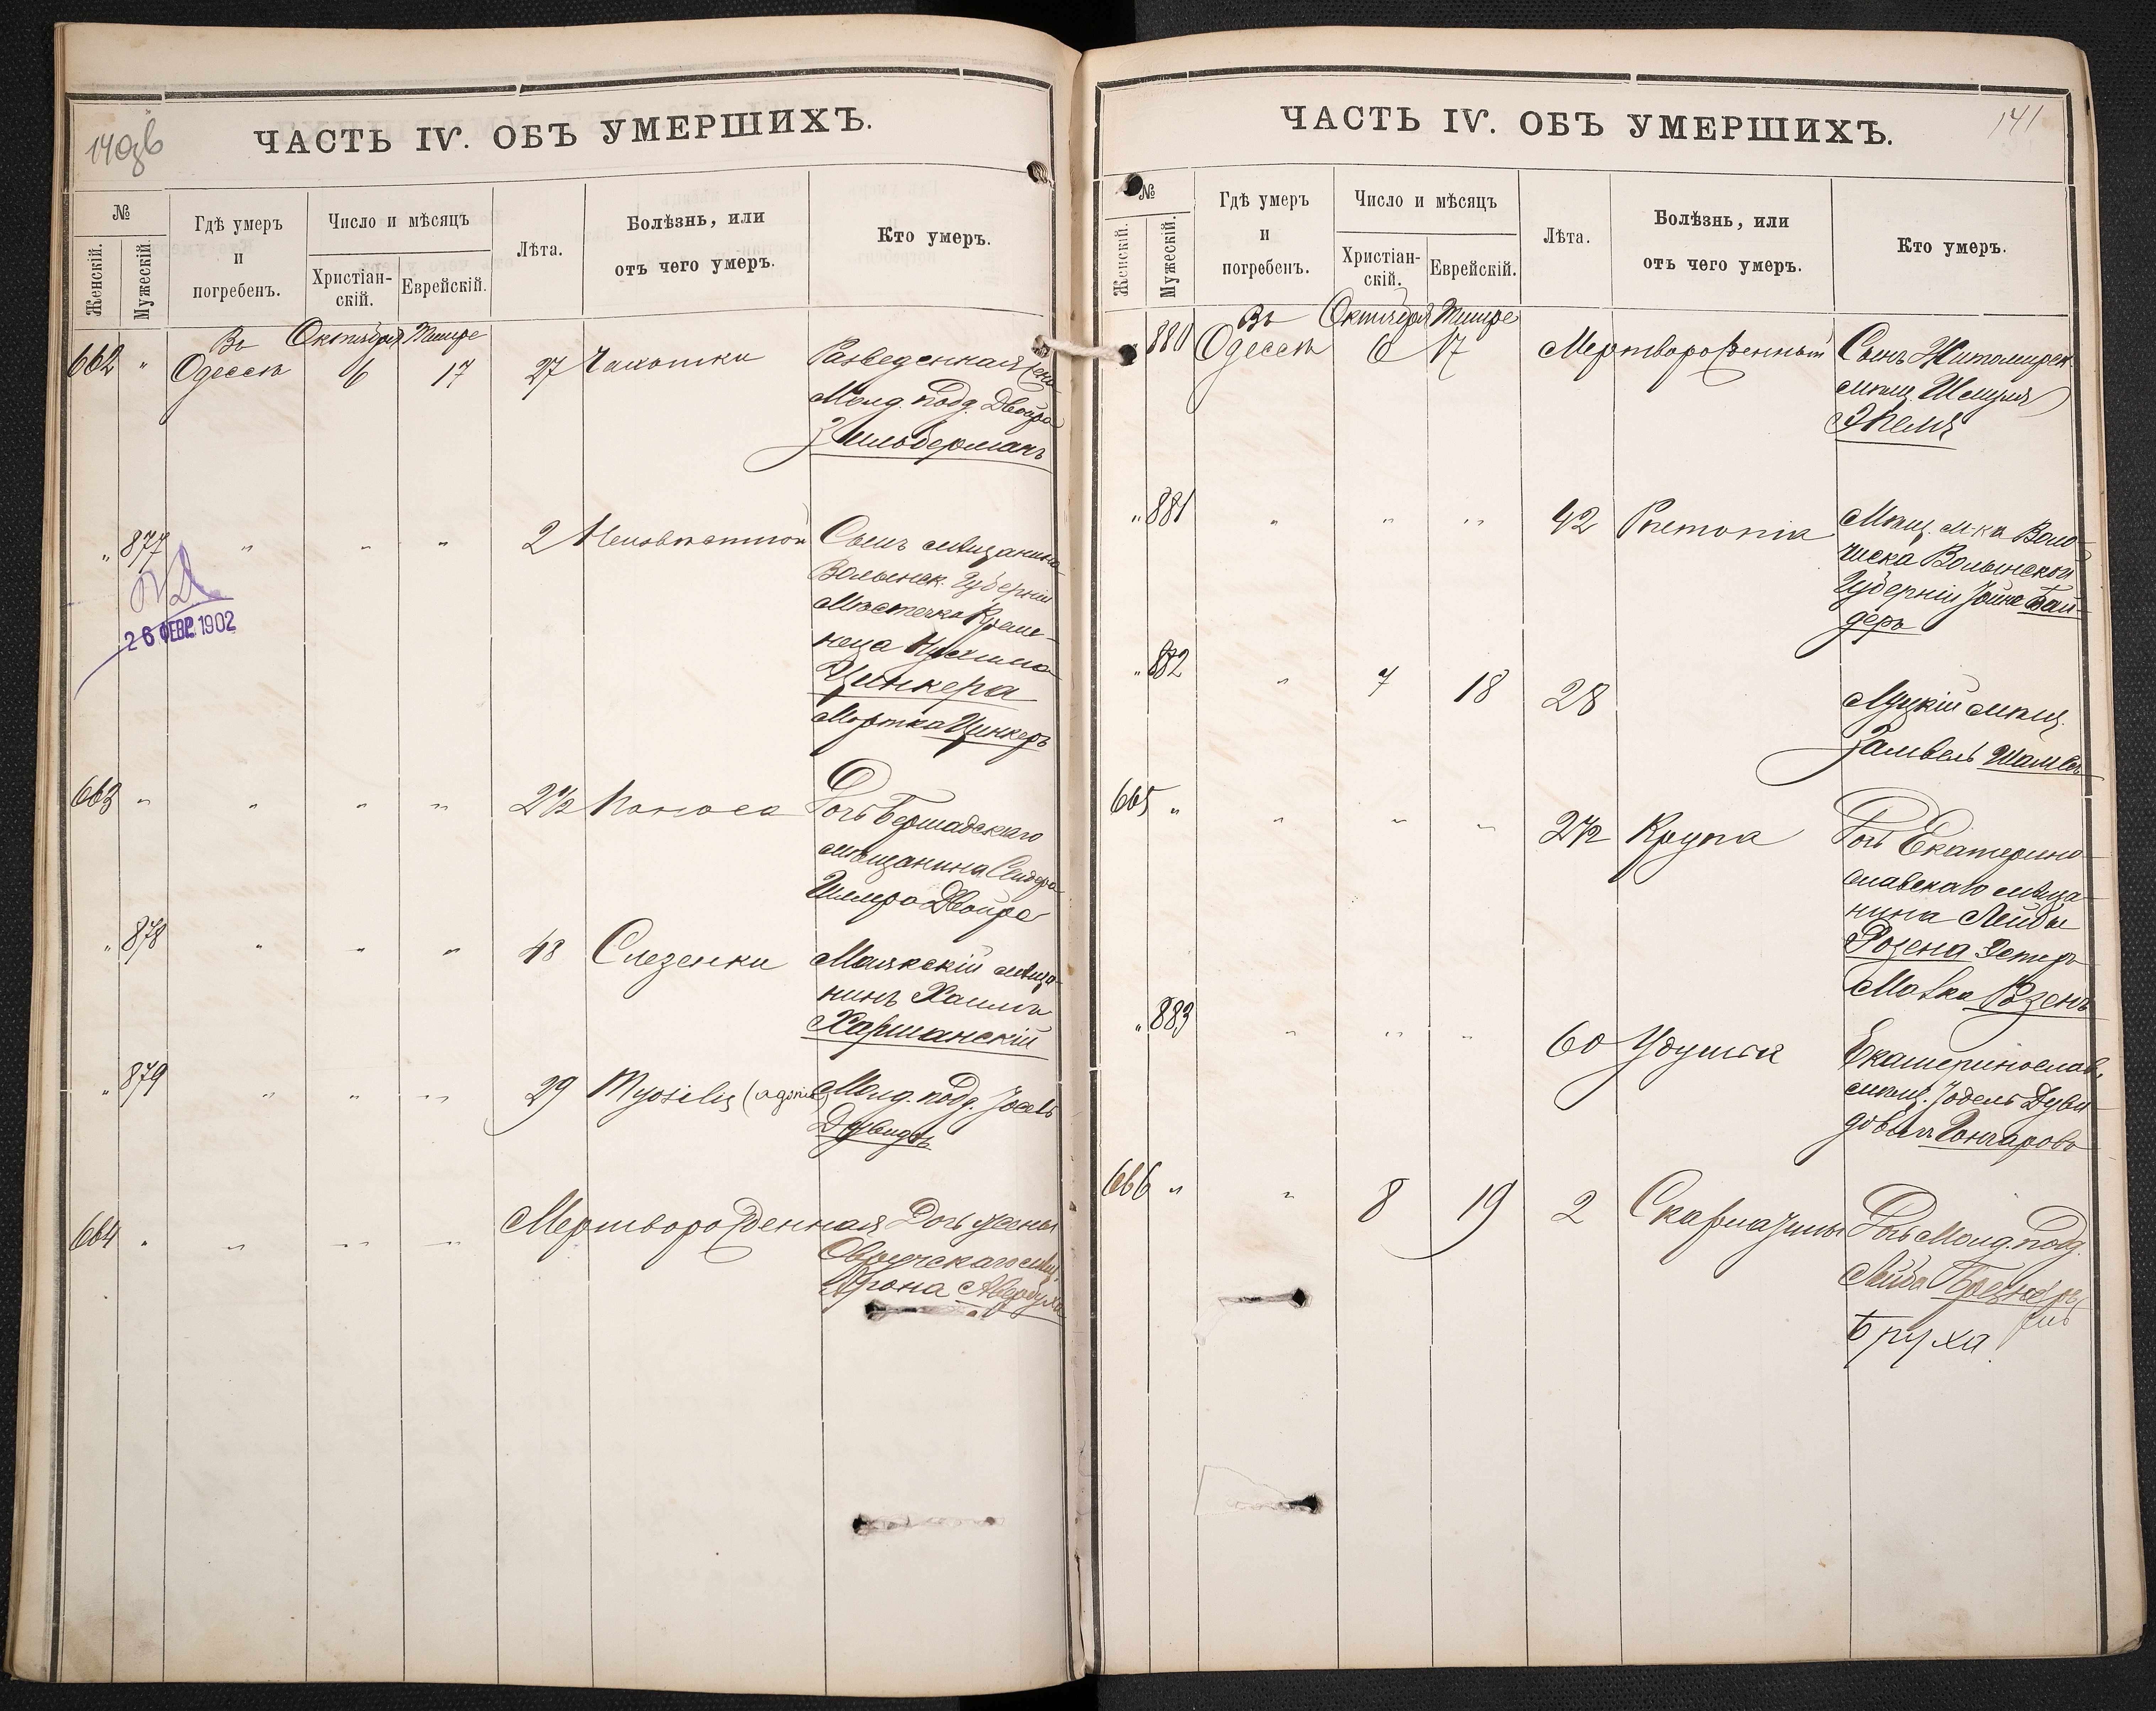 140об
ЧАСТЬ IV. ОБЪ УМЕРШИХЪ.
№
Женскій.
Мужескій.
Гдѣ умеръ
и
погребенъ.
Число и мѣсяцъ
Христіан-
скій.
Еврейскій.
Лѣта.
Болѣзнь, или
отъ чего умеръ.
Кто умеръ.
662 " Въ Одессѣ Октября 6 Тишре 17 27 Чахотки Разведенная жена
Молд. подд. Двойра
Зильберманъ
" 877 " " " 2 Сынъ мѣщанина
Волынск. Губерніи
Мѣстечка Креме-
неца
Цинкера
Мортко Цинкеръ
26 ФЕВР. 1902
663 " " " " 2½ Поноса Дочь Бершадскаго
мѣщанина Сендера
Двойра
" 878 " " " 48 Слезенки Маякскій мѣща-
нинъ Хаимъ
Харшанскій
" 879 " " " 29 Молд. подд. Іосель
Дувидъ
664 " " " " Мертворожденная Дочь жены
Овручскаго мѣщ.
Арона Авербуха
141
ЧАСТЬ IV. ОБЪ УМЕРШИХЪ.
№
Женскій.
Мужескій.
Гдѣ умеръ
и
погребенъ.
Число и мѣсяцъ
Христіан-
скій.
Еврейскій.
Лѣта.
Болѣзнь, или
отъ чего умеръ.
Кто умеръ.
" 880 Въ Одессѣ Октября 6 Тишре 17 Мертворожденный Сынъ Житомирск.
мѣщ. Шмуля
Эпеля
" 881 " " " 42 Pnemonia Мѣщ. м-ка Воло-
чиска Волынской
Губерніи Іойна Бай-
деръ
" 882 " 7 18 28 Луцкій мѣщ.
Замвель
665 " " " " 2½ Крупа Дочь Екатерино-
славскаго мѣща-
нина Лейбы
Розена Эстеръ
Малка Розенъ
" 883 " " " 60 Удушья Екатеринослав.
мѣщ. Іодель Дуви-
довъ Гончаровъ
666 " " 8 19 2 Скарлатины Дочь Молд. подд.
Лейба
Бруха